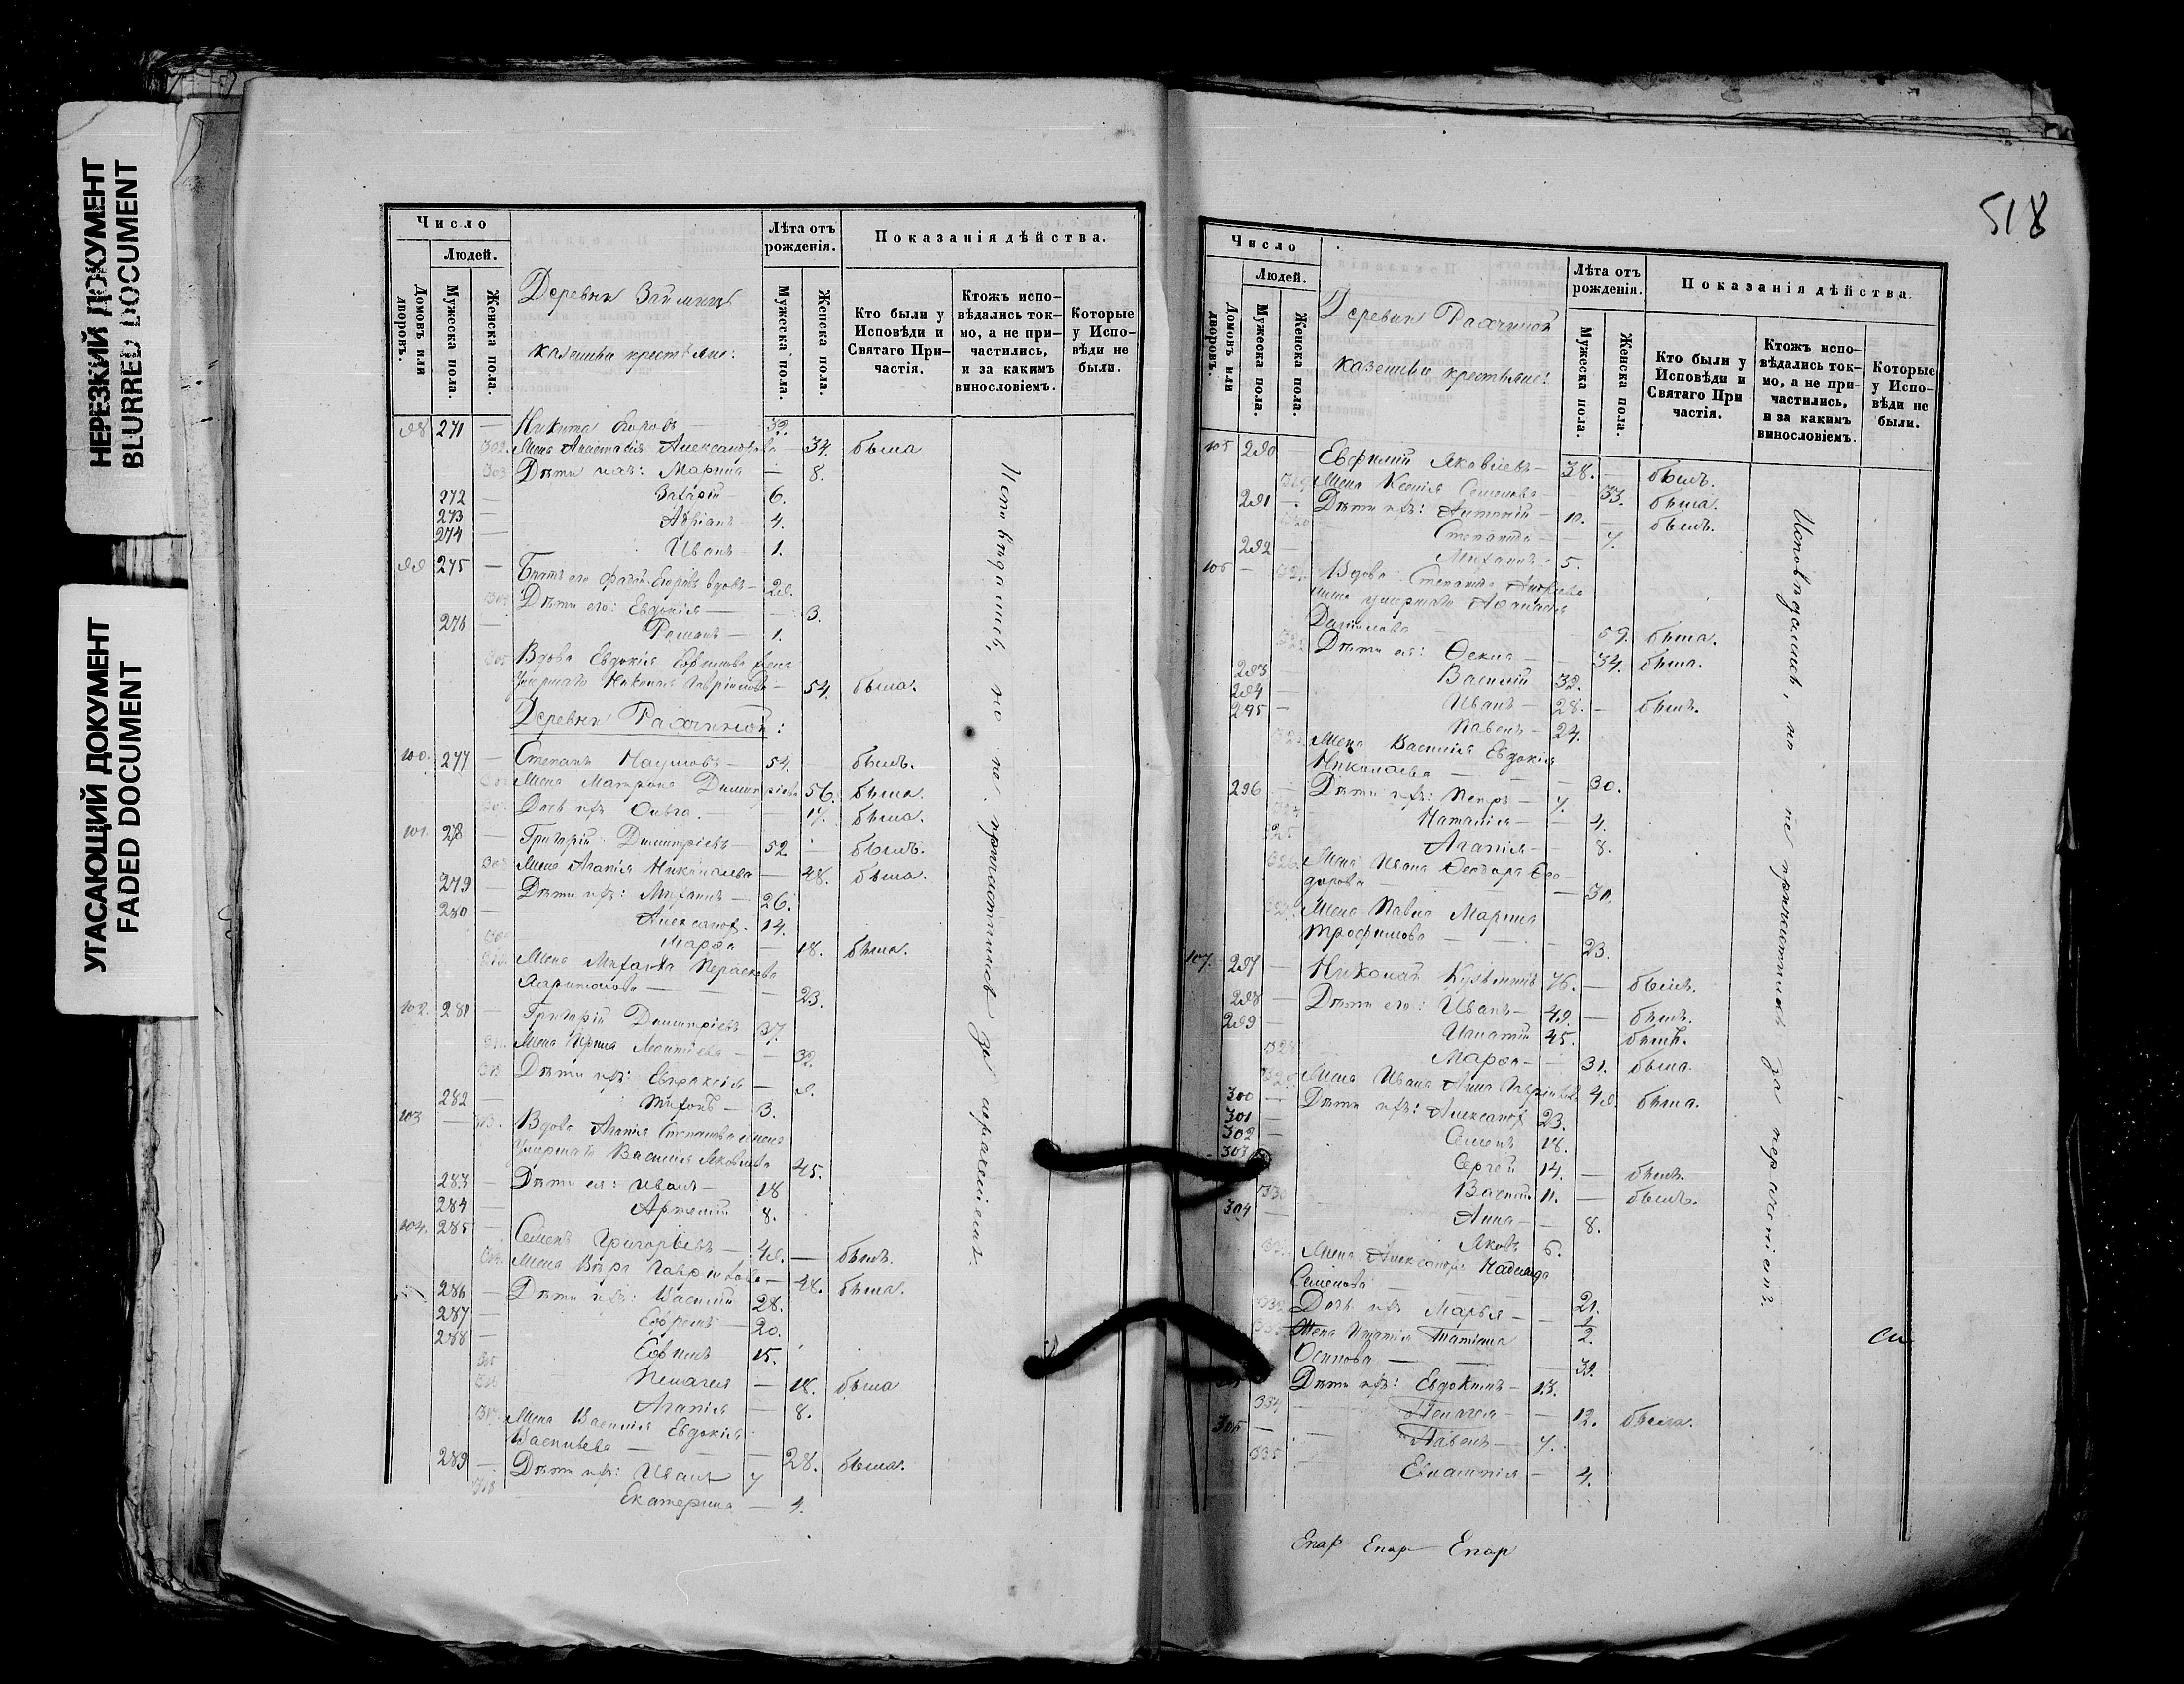 НЕРЕЗКИЙ ДОКУМЕНТ
BLURRED DOCUMENT
УГАСАЮЩИЙ ДОКУМЕНТ
FADED DOCUMENT
Число
Людей.
Домовъ или дворовъ.
Мужеска пола.
Женска пола.
Деревни
крестьяне:
Лѣта отъ рожденія.
Мужеска пола.
Женска пола.
Показанія дѣйства.
Кто были у Исповѣди и Святаго При-
частія.
Ктожъ испо-
вѣдались ток-
мо, а не при-
частились,
и за какимъ
винословіемъ.
Которые
у Испо-
вѣди не
были.
271 — Никита 32.
302. Жена Анастасія Александрова — 34. была
303 Дѣти ихъ: Марина — 8.
272 — Захарій — 6.
273 — Адріанъ — 4.
274 — Иванъ — 1.
99 275 — Братъ его вдовъ — 29.
304 Дѣти его: Евдокія — 3.
276 — Романъ — 1.
305 Вдова Евдокія Ефимова жена
умершаго Николая Гаврилова — 54. была.
Деревни :
100. 277 — Степанъ Наумовъ — 54. — былъ.
306 Жена Матрона Димитріева 56. была.
307 Дочь ихъ Ольга. — 17. была.
101. 278 — Григорій Димитріевъ — 52 — былъ.
308 Жена Агапія Николаева — 48. была.
279 — Дѣти ихъ: Михаилъ — 26.
280 — Александръ. 14.
309 Марѳа — 18. была.
310 Жена Михаила Параскева
Харитонова — 23.
102. 281 — Григорій Димитріевъ 37.
311. Жена Ирина Леонтіева — 32.
312 Дѣти ихъ: Евпраксія — 9.
282 — Тихонъ — 3.
103 — 313. Вдова Агапія Степанова жена
умершаго Василія Яковлева 45.
283. — Дѣти ея: Иванъ — 18
284 — Артемій 8.
104. 285 — Семенъ Григорьевъ — 49. — былъ.
314 Жена Вѣра Гаврилова — 48. была.
286 — Дѣти ихъ: Василій 28.
287 — Ефремъ — 20.
288 — Ефимъ — 15.
315 Пелагея — 18. была
316 Агапія — 8.
317. Жена Василія Евдокія
Васильева — 28. была.
289 — Дѣти ихъ: Иванъ 7
318 Екатерина — 4.
Исповѣдались, но не причастились за нерачѣніемъ.
518
Число
Людей.
Домовъ или дворовъ.
Мужеска пола.
Женска пола.
Деревни
казенные крестьяне:
Лѣта отъ рожденія.
Мужеска пола.
Женска пола.
Показанія дѣйства.
Кто были у
Исповѣди и
Святаго При
частія.
Ктожъ испо-
вѣдались ток-
мо, а не при-
частились,
и за какимъ
винословіемъ.
Которые
у Испо-
вѣди не
были.
105 290 — Евфимій Яковлевъ — 38. — былъ.
319 Жена Ксенія Семенова — 33. была.
291 — Дѣти ихъ: Антоній — 10. — былъ.
320 Степанида — 7.
292 — Михаилъ — 5.
106 — 321 Вдова Степанида Андреева
жена умершаго Аѳанасія
Данилова — 59. была.
322 Дѣти ея: Ѳекла — 34. была.
293 — Василій 32.
294 — Иванъ — 28. — былъ.
295 — Павелъ — 24.
323 Жена Василія Евдокія
Николаева — 30.
296 — Дѣти ихъ: Петръ — 7.
324 Наталія — 4.
325 Агапія — 8.
326. Жена Ивана Ѳеодора Ѳео-
дорова — 30.
327 Жена Павла Марина
Трофимова — 23.
107. 297 — Николай Кузьминъ 76. — былъ.
298 — Дѣти его: Иванъ — 49. — былъ.
299 — Игнатій 45. былъ.
328 Марѳа — 31. была
329 Жена Ивана Анна Гаврилова 49. была.
300 — Дѣти ихъ: Александръ 23.
301 — Семенъ 18.
302 — Сергей 14. — былъ.
303 Василій 11. — былъ.
330 Анна — 8.
304 — Яковъ 6.
331 Жена Александра Надежда
Семенова — 21.
332 Дочь ихъ Марья — 1/2.
333 Жена Игнатія Татіана
Осипова — 39.
Дѣти ихъ: Евдокимъ — 13.
334 Пелагея — 12. была.
306 — Павелъ — 7.
335 Евлампія — 4.
Исповѣдались, но не причастились за нерачѣніемъ.
Епар Епар Епар